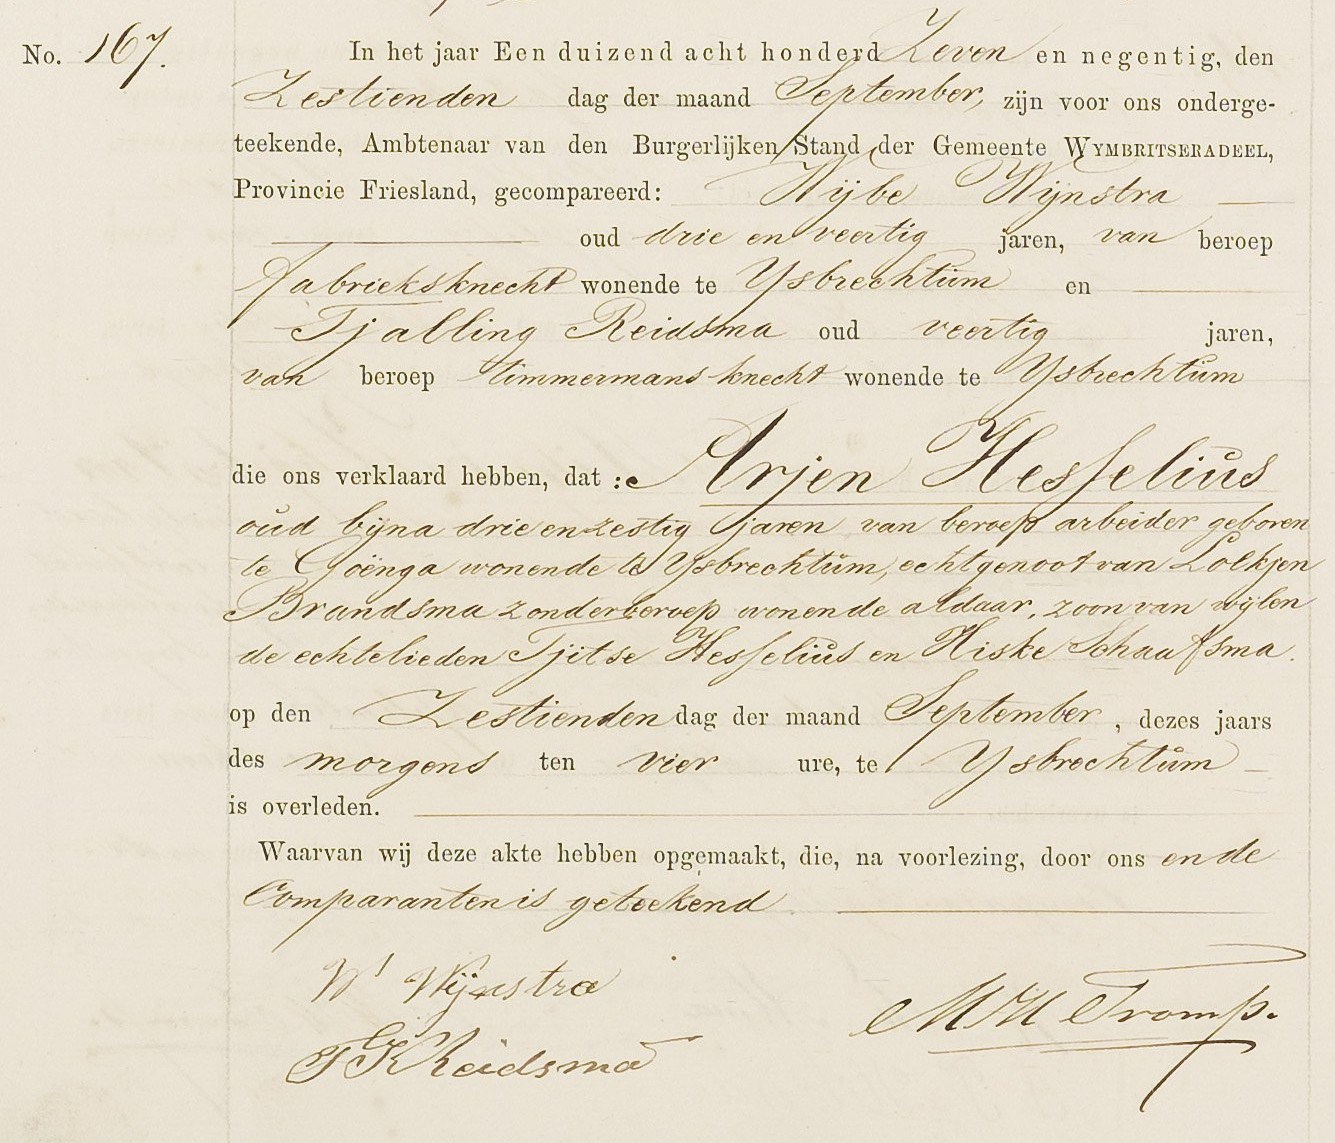 No. 167.
In het jaar Een duizend acht honderd Zeven en negentig, den
Zestienden dag der maand September, zijn voor ons onderge-
teekende, Ambtenaar van den Burgerlijken Stand der Gemeente WYMBRITSERADEEL,
Provincie Friesland, gecompareerd: Wijbe Wijnstra
oud drie en veertig jaren, van beroep
fabrieksknecht wonende te Ysbrechtum en
Tjalling Reidsma oud veertig jaren,
van beroep timmermansknecht wonende te Ysbrechtum
die ons verklaard hebben, dat : Arjen Hesselius
oud bijna drie en zestig jaren van beroep arbeider geboren
te Goënga wonende te Ysbrechtum, echtgenoot van Lolkjen
Brandsma zonder beroep wonende aldaar, zoon van wijlen
de echtelieden Tjitse Hesselius en Hiske Schaafsma.
op den Zestienden dag der maand September, dezes jaars
des morgens ten vier ure, te Ysbrechtum
is overleden.
Waarvan wij deze akte hebben opgemaakt, die, na voorlezing, door ons en de
Comparanten is geteekend
W Wijnstra
M H Tromp.
T K Reidsma